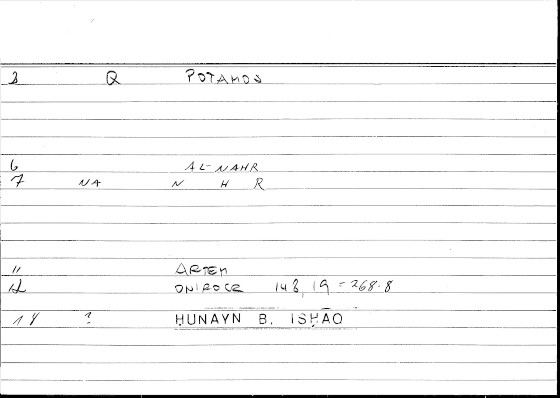 3 Q POTAMOS
6 AL-NAHR
7 NA N H R
" ARTEM
12 ONIROCR 148, 19 = 268.8
18 ? ḤUNAYN B. ISḤĀQ